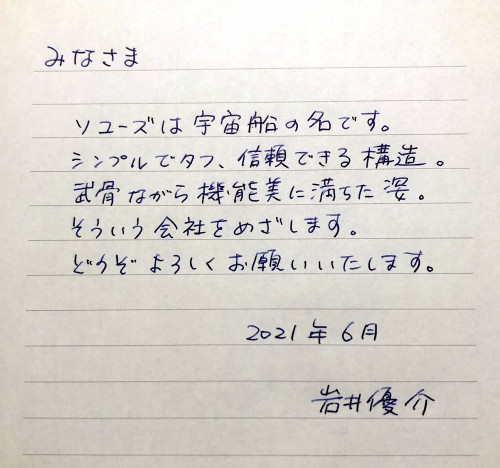 みなさま
ソユーズは宇宙船の名です。
シンプルでタフ、信頼できる構造。
武骨ながら機能美に満ちた姿。
そういう会社をめざします。
どうぞよろしくお願いいたします。
2021年6月
岩井優介